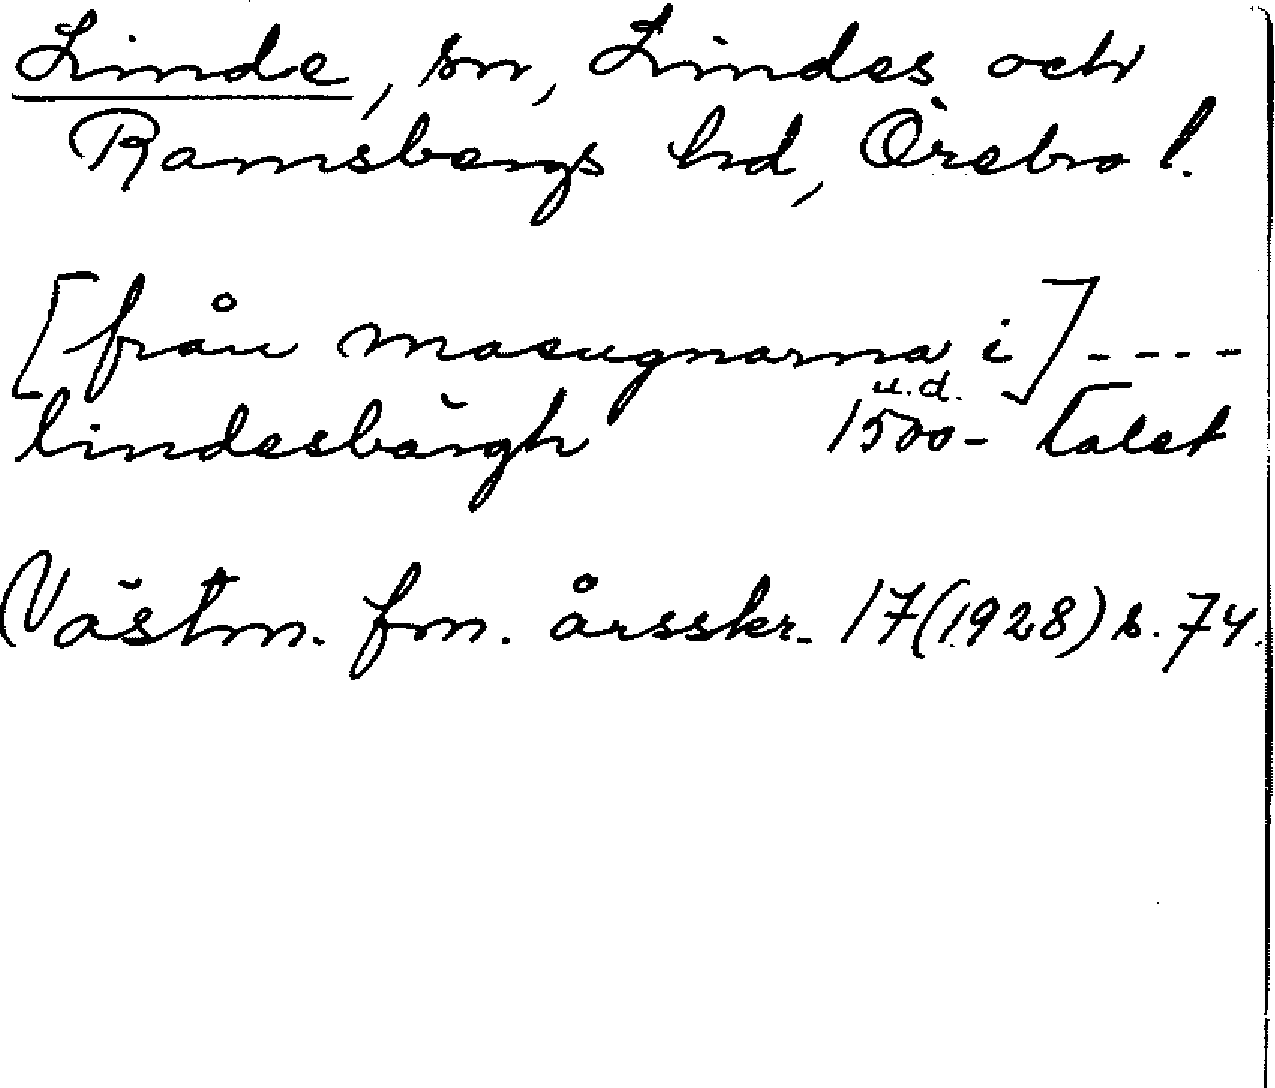 Linde, sn, Lindes och
Ramsbergs hd, Örebro l.
[från masugnarna i] ----
u.d.
lindesbärgh 1500-talet
Västm. fm. årsskr. 17(1928) s. 74.